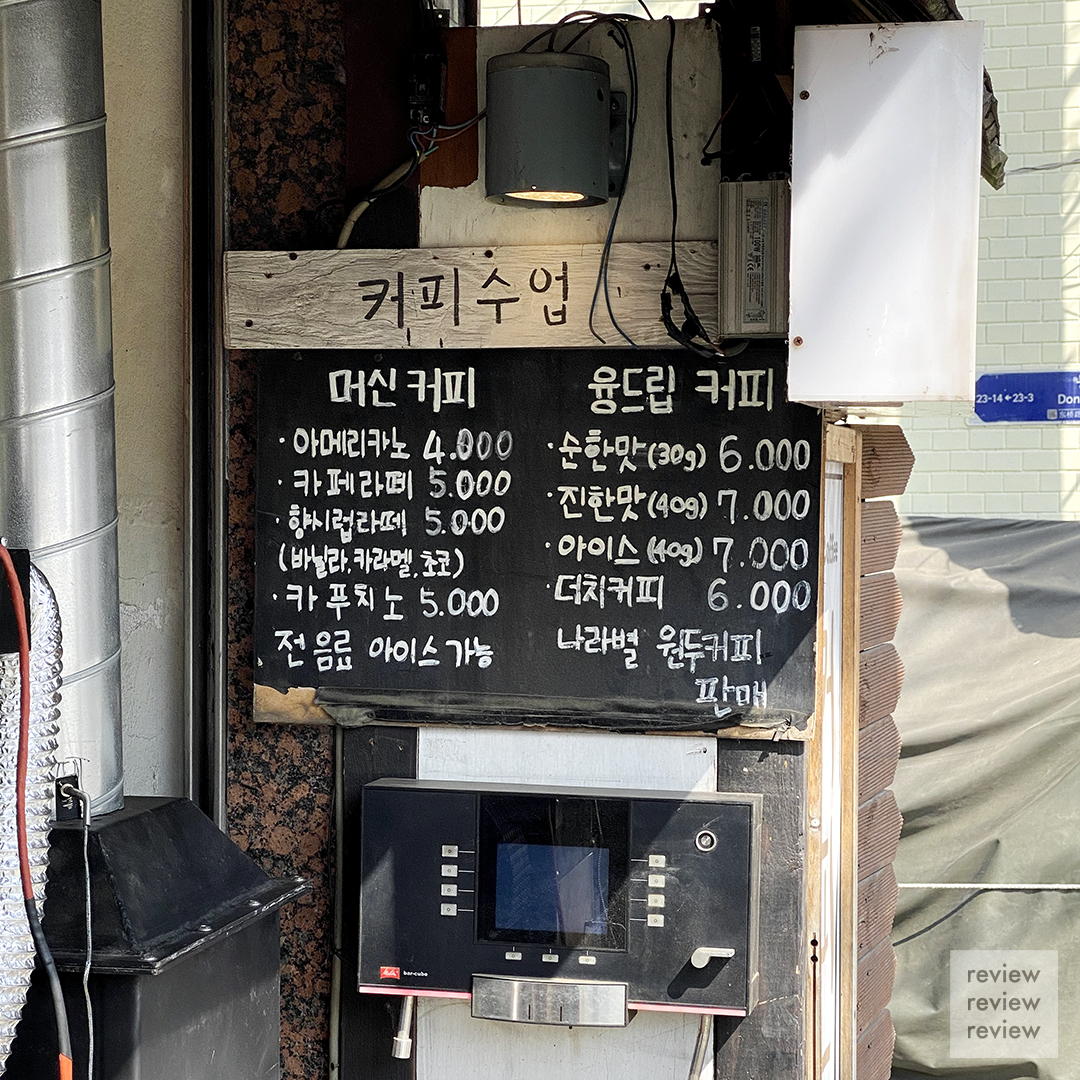 커피수업
머신 커피
· 아메리카노 4.000
· 카페라떼 5.000
· 향시럽라떼 5.000
(바닐라,카라멜,초코)
· 카푸치노 5.000
전 음료 아이스 가능
융드립 커피
· 순한맛(30g) 6.000
· 진한맛(40g) 7.000
· 아이스(40g) 7.000
· 더치커피 6.000
나라별 원두커피
판매
23-14←23-3
Don
Melitta bar-cube
review
review
review